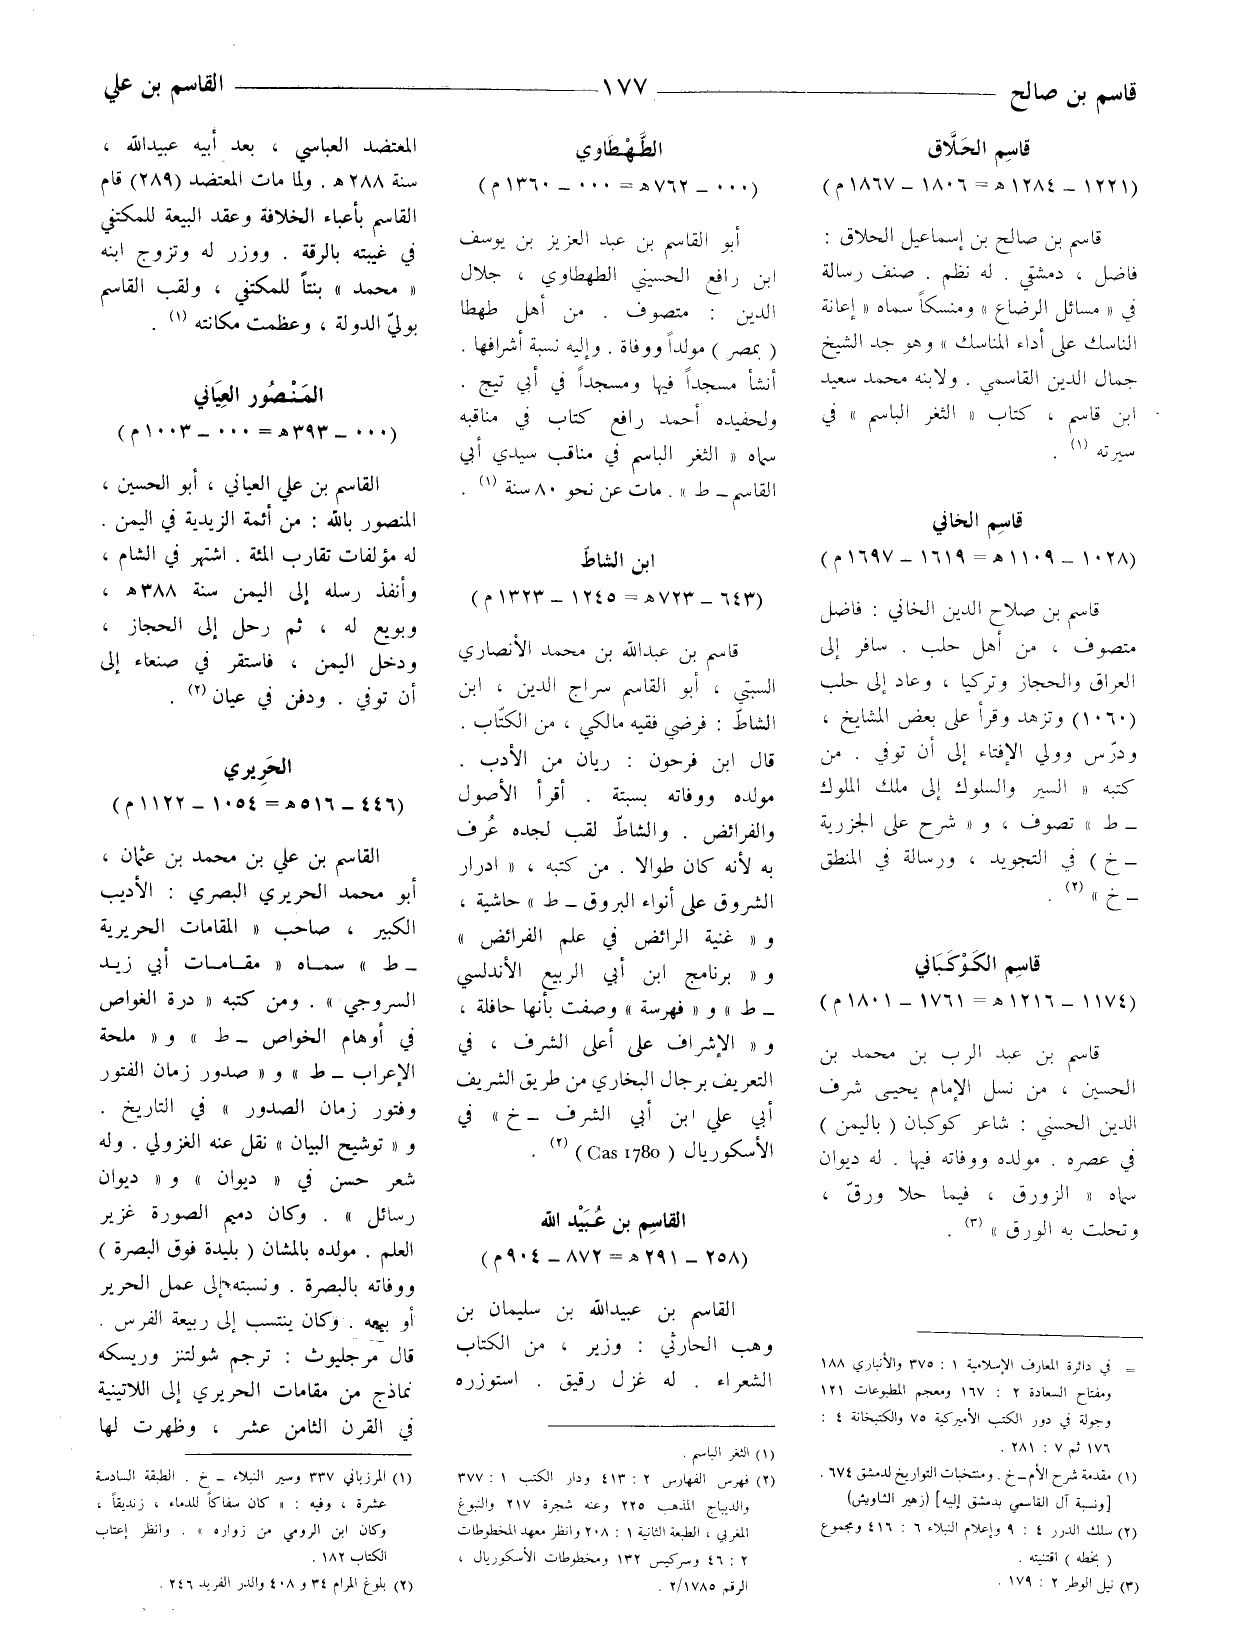 قاسم بن صالح
١٧٧
القاسم بن علي
قاسِم الحَلَّاق
(١٢٢١ ــ ١٢٨٤ هـ = ١٨٠٦ ــ ١٨٦٧ م)
قاسم بن صالح بن إسماعيل الحلاق :
فاضل ، دمشقي . له نظم . صنف رسالة
في « مسائل الرضاع » ومنسكاً سماه « إعانة
الناسك على أداء المناسك » وهو جد الشيخ
جمال الدين القاسمي . ولابنه محمد سعيد
ابن قاسم ، كتاب « الثغر الباسم » في
سيرته (١) .
قاسِم الخاني
(١٠٢٨ ــ ١١٠٩ هـ = ١٦١٩ ــ ١٦٩٧ م)
قاسم بن صلاح الدين الخاني : فاضل
متصوف ، من أهل حلب . سافر إلى
العراق والحجاز وتركيا ، وعاد إلى حلب
(١٠٦٠) وتزهد وقرأ على بعض المشايخ ،
ودرّس وولي الإفتاء إلى أن توفي . من
كتبه « السير والسلوك إلى ملك الملوك
ــ ط » تصوف ، و « شرح على الجزرية
ــ خ ) في التجويد ، ورسالة في المنطق
ــ خ » (٢) .
قاسِم الكَوْكَبَاني
(١١٧٤ ــ ١٢١٦ هـ = ١٧٦١ ــ ١٨٠١ م)
قاسم بن عبد الرب بن محمد بن
الحسين ، من نسل الإمام يحيى شرف
الدين الحسني : شاعر كوكبان ( باليمن )
في عصره . مولده ووفاته فيها . له ديوان
سماه « الزورق ، فيما حلا ورقّ ،
وتحلت به الورق » (٣) .
= في دائرة المعارف الإسلامية ١ : ٣٧٥ والأنباري ١٨٨
ومفتاح السعادة ٢ : ١٦٧ ومعجم المطبوعات ١٢١
وجولة في دور الكتب الأميركية ٧٥ والكتبخانة ٤ :
١٧٦ ثم ٧ : ٢٨١ .
(١) مقدمة شرح الأم ــ خ . ومنتخبات التواريخ لدمشق ٦٧٤ .
[ونسبة آل القاسمي بدمشق إليه] (زهير الشاويش)
(٢) سلك الدرر ٤ : ٩ وإعلام النبلاء ٦ : ٤١٦ ومجموع
( بخطه ) اقتنيته .
(٣) نيل الوطر ٢ : ١٧٩ .
الطَّهْطَاوي
(٠٠٠ ــ ٧٦٢ هـ = ٠٠٠ ــ ١٣٦٠ م)
أبو القاسم بن عبد العزيز بن يوسف
ابن رافع الحسيني الطهطاوي ، جلال
الدين : متصوف . من أهل طهطا
( بمصر ) مولداً ووفاة . وإليه نسبة أشرافها .
أنشأ مسجداً فيها ومسجداً في أبي تيج .
ولحفيده أحمد رافع كتاب في مناقبه
سماه « الثغر الباسم في مناقب سيدي أبي
القاسم ــ ط » . مات عن نحو ٨٠ سنة (١) .
ابن الشاطّ
(٦٤٣ ــ ٧٢٣ هـ = ١٢٤٥ ــ ١٣٢٣ م)
قاسم بن عبدالله بن محمد الأنصاري
السبتي ، أبو القاسم سراج الدين ، ابن
الشاطّ : فرضي فقيه مالكي ، من الكتّاب .
قال ابن فرحون : ريان من الأدب .
مولده ووفاته بسبتة . أقرأ الأصول
والفرائض . والشاطّ لقب لجده عُرف
به لأنه كان طوالا . من كتبه ، « ادرار
الشروق على أنواء البروق ــ ط » حاشية ،
و « غنية الرائض في علم الفرائض »
و « برنامج ابن أبي الربيع الأندلسي
ــ ط » و « فهرسة » وصفت بأنها حافلة ،
و « الإشراف على أعلى الشرف ، في
التعريف برجال البخاري من طريق الشريف
أبي علي ابن أبي الشرف ــ خ » في
الأسكوريال ( Cas 1780 ) (٢) .
القاسِم بن عُبَيْد الله
(٢٥٨ ــ ٢٩١ هـ = ٨٧٢ ــ ٩٠٤ م)
القاسم بن عبيدالله بن سليمان بن
وهب الحارثي : وزير ، من الكتاب
الشعراء . له غزل رقيق . استوزره
(١) الثغر الباسم .
(٢) فهرس الفهارس ٢ : ٤١٣ ودار الكتب ١ : ٣٧٧
والديباج المذهب ٢٢٥ وعنه شجرة ٢١٧ والنبوغ
المغربي ، الطبعة الثانية ١ : ٢٠٨ وانظر معهد المخطوطات
٢ : ٤٦ وسركيس ١٣٢ ومخطوطات الأسكوريال ،
الرقم ٢/١٧٨٥ .
المعتضد العباسي ، بعد أبيه عبيدالله ،
سنة ٢٨٨ هـ . ولما مات المعتضد (٢٨٩) قام
القاسم بأعباء الخلافة وعقد البيعة للمكتفي
في غيبته بالرقة . ووزر له وتزوج ابنه
« محمد » بنتاً للمكتفي ، ولقب القاسم
بوليّ الدولة ، وعظمت مكانته (١) .
المَنْصُور العِيَاني
(٠٠٠ ــ ٣٩٣ هـ = ٠٠٠ ــ ١٠٠٣ م)
القاسم بن علي العياني ، أبو الحسين ،
المنصور بالله : من أئمة الزيدية في اليمن .
له مؤلفات تقارب المئة . اشتهر في الشام ،
وأنفذ رسله إلى اليمن سنة ٣٨٨ هـ ،
وبويع له ، ثم رحل إلى الحجاز ،
ودخل اليمن ، فاستقر في صنعاء إلى
أن توفي . ودفن في عيان (٢) .
الحَرِيري
(٤٤٦ ــ ٥١٦ هـ = ١٠٥٤ ــ ١١٢٢ م)
القاسم بن علي بن محمد بن عثمان ،
أبو محمد الحريري البصري : الأديب
الكبير ، صاحب « المقامات الحريرية
ــ ط » سماه « مقامات أبي زيد
السروجي » . ومن كتبه « درة الغواص
في أوهام الخواص ــ ط » و « ملحة
الإعراب ــ ط » و « صدور زمان الفتور
وفتور زمان الصدور » في التاريخ .
و « توشيح البيان » نقل عنه الغزولي . وله
شعر حسن في « ديوان » و « ديوان
رسائل » . وكان دميم الصورة غزير
العلم . مولده بالمشان ( بليدة فوق البصرة )
ووفاته بالبصرة . ونسبته إلى عمل الحرير
أو بيعه . وكان ينتسب إلى ربيعة الفرس .
قال مرجليوث : ترجم شولتنز وريسكه
نماذج من مقامات الحريري إلى اللاتينية
في القرن الثامن عشر ، وظهرت لها
(١) المرزباني ٣٣٧ وسير النبلاء ــ خ . الطبقة السادسة
عشرة ، وفيه : « كان سفاكاً للدماء ، زنديقاً ،
وكان ابن الرومي من زواره » . وانظر إعتاب
الكتاب ١٨٢ .
(٢) بلوغ المرام ٣٤ و ٤٠٨ والدر الفريد ٢٤٦ .